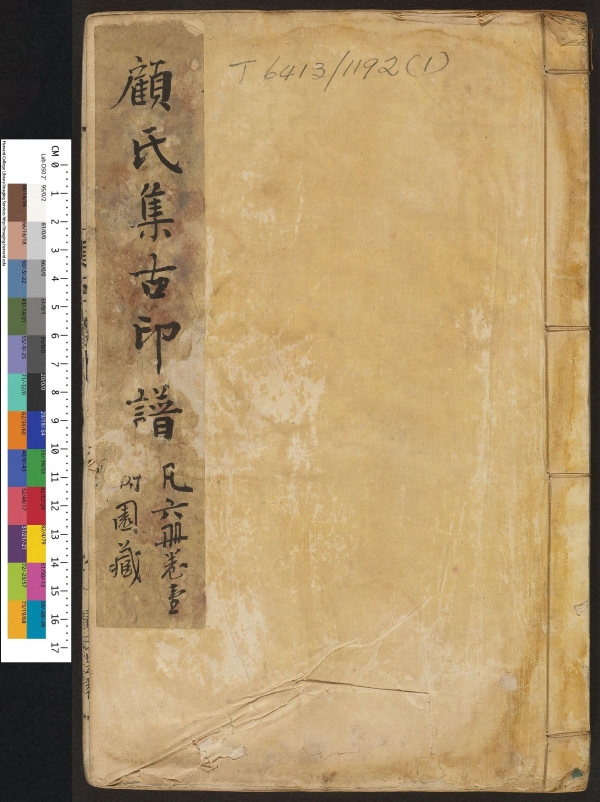 T 6413/1192 (1)
顧氏集古印譜
凡六冊卷壹
園藏
CM 0 1 2 3 4 5 6 7 8 9 10 11 12 13 14 15 16 17
Harvard College Library Imaging Services